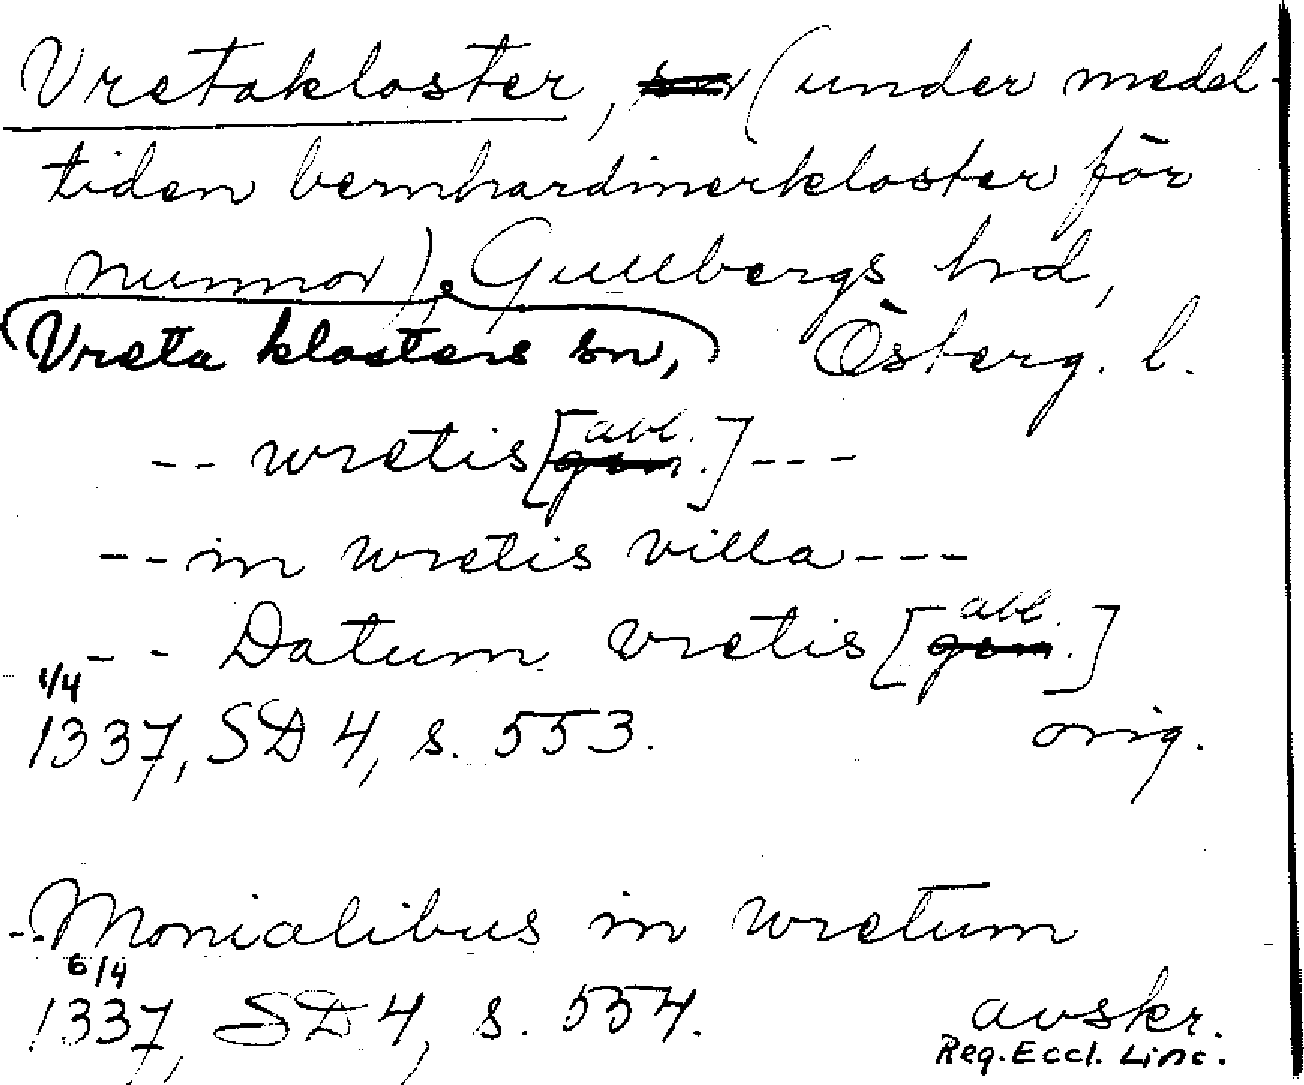 Vretakloster, (under medel-
tiden bernhardinerkloster för
nunnor). Gullbergs hrd,
Vreta klosters sn, Österg. l.
-- wretis [abl.] ---
-- in wretis villa ---
-- Datum vretis [abl.]
1/4
1337, SD 4, s. 553. orig.
-- Monialibus in wretum
6/4
1337, SD 4, s. 554. avskr.
Reg. Eccl. Linc.